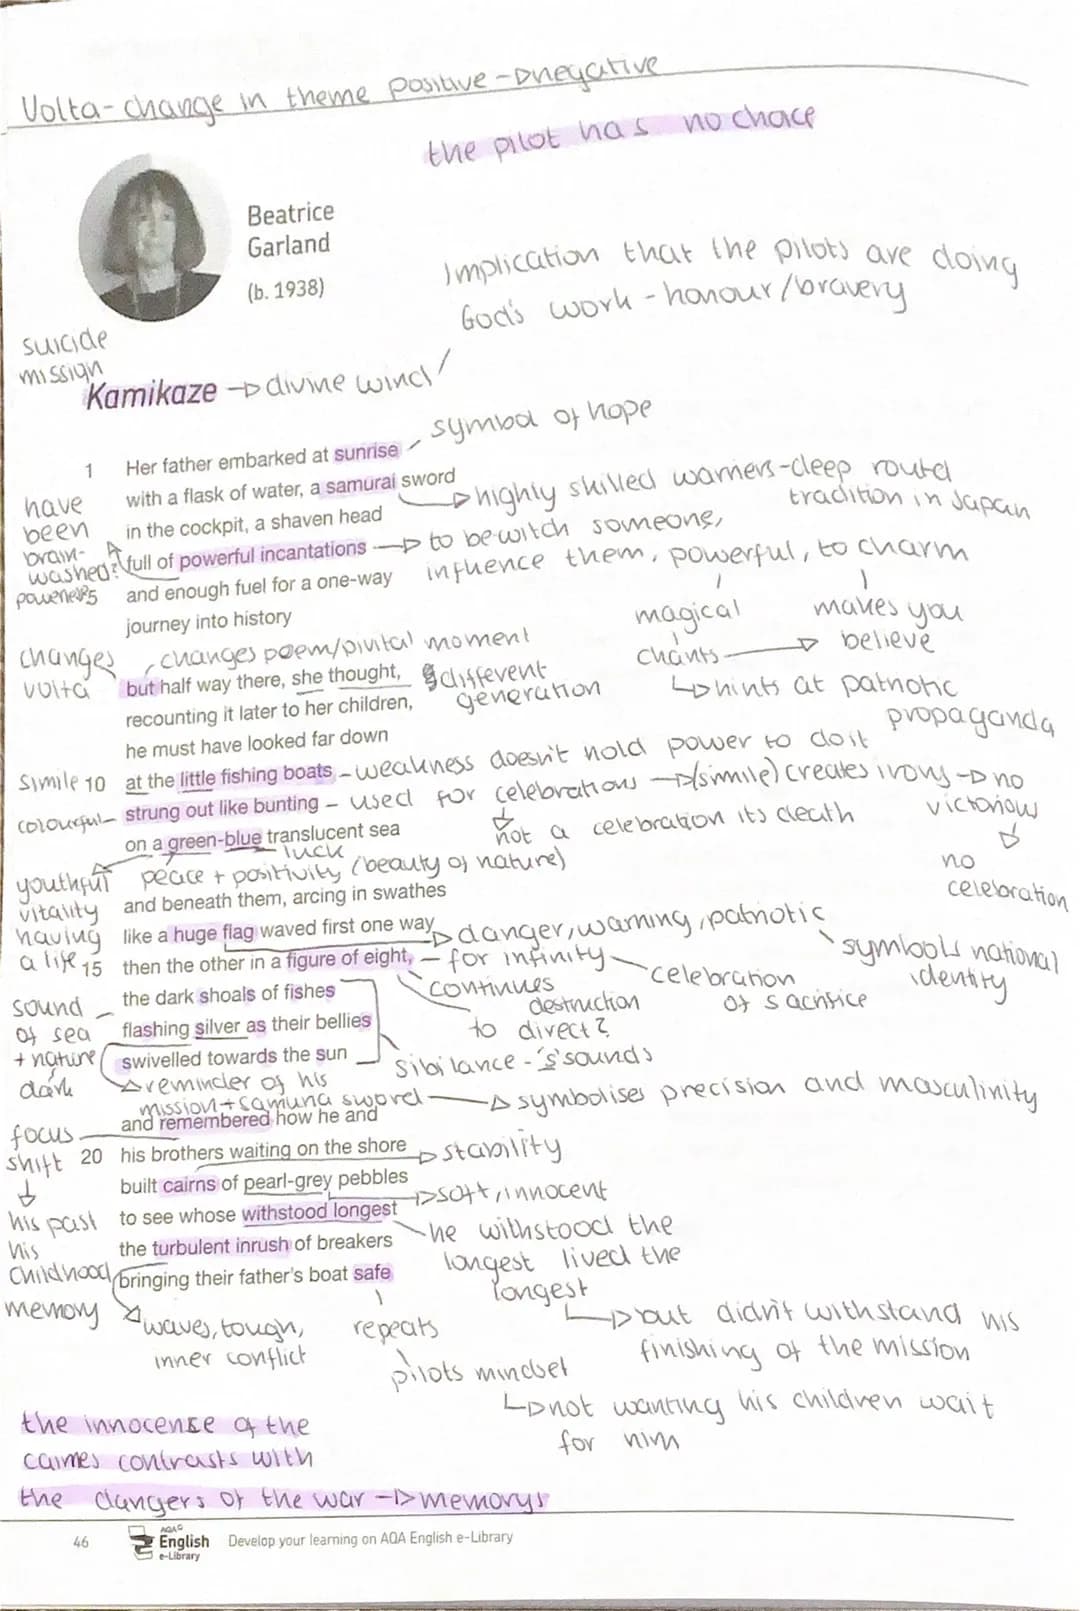 Volta-change in theme positive -> negative
the pilot has no choice
Beatrice
Garland
(b. 1938)
Implication that the pilots are doing
God's work - honour/bravery
suicide
mission
Kamikaze -> divine wind
symbol of hope
1 Her father embarked at sunrise
with a flask of water, a samurai sword
highly skilled warriers-deep routed
tradition in Japan
have
been
brain-
washed?
in the cockpit, a shaven head
full of powerful incantations -> to bewitch someone,
influence them, powerful, to charm
5 and enough fuel for a one-way
journey into history
magical
chants
makes you
believe
hints at patriotic
propaganda
changes
volta
changes poem/pivital moment
but half way there, she thought,
different
generation
recounting it later to her children,
he must have looked far down
simile 10 at the little fishing boats - weakness doesn't hold power to do it
colourful - strung out like bunting - used for celebrations -> (simile) creates irony -> no
victorious
no
celebration
not a celebration its death
on a green-blue translucent sea
luck
peace + positivity (beauty of nature)
youthful
vitality
having
a life
and beneath them, arcing in swathes
like a huge flag waved first one way
danger, warning, patriotic
symbols national
identity
15 then the other in a figure of eight, - for infinity
continues
destruction
to direct?
celebration
of sacrifice
sound
of sea
+ nature
dark
the dark shoals of fishes
flashing silver as their bellies
swivelled towards the sun
sibilance - 's' sounds
reminder of his
mission + samurai sword -> symbolises precision and masculinity
focus
shift
his past
his
childhood
memory
and remembered how he and
20 his brothers waiting on the shore -> stability
built cairns of pearl-grey pebbles
soft, innocent
to see whose withstood longest
he withstood the
longest lived the
longest
but didn't withstand his
finishing of the mission
the turbulent inrush of breakers
bringing their father's boat safe
waves, tough,
inner conflict
repeats
pilots mindset
not wanting his children wait
for him
the innocense of the
cairnes contrasts with
the dangers of the war -> memorys
46
AQA
English
e-Library
Develop your learning on AQA English e-Library